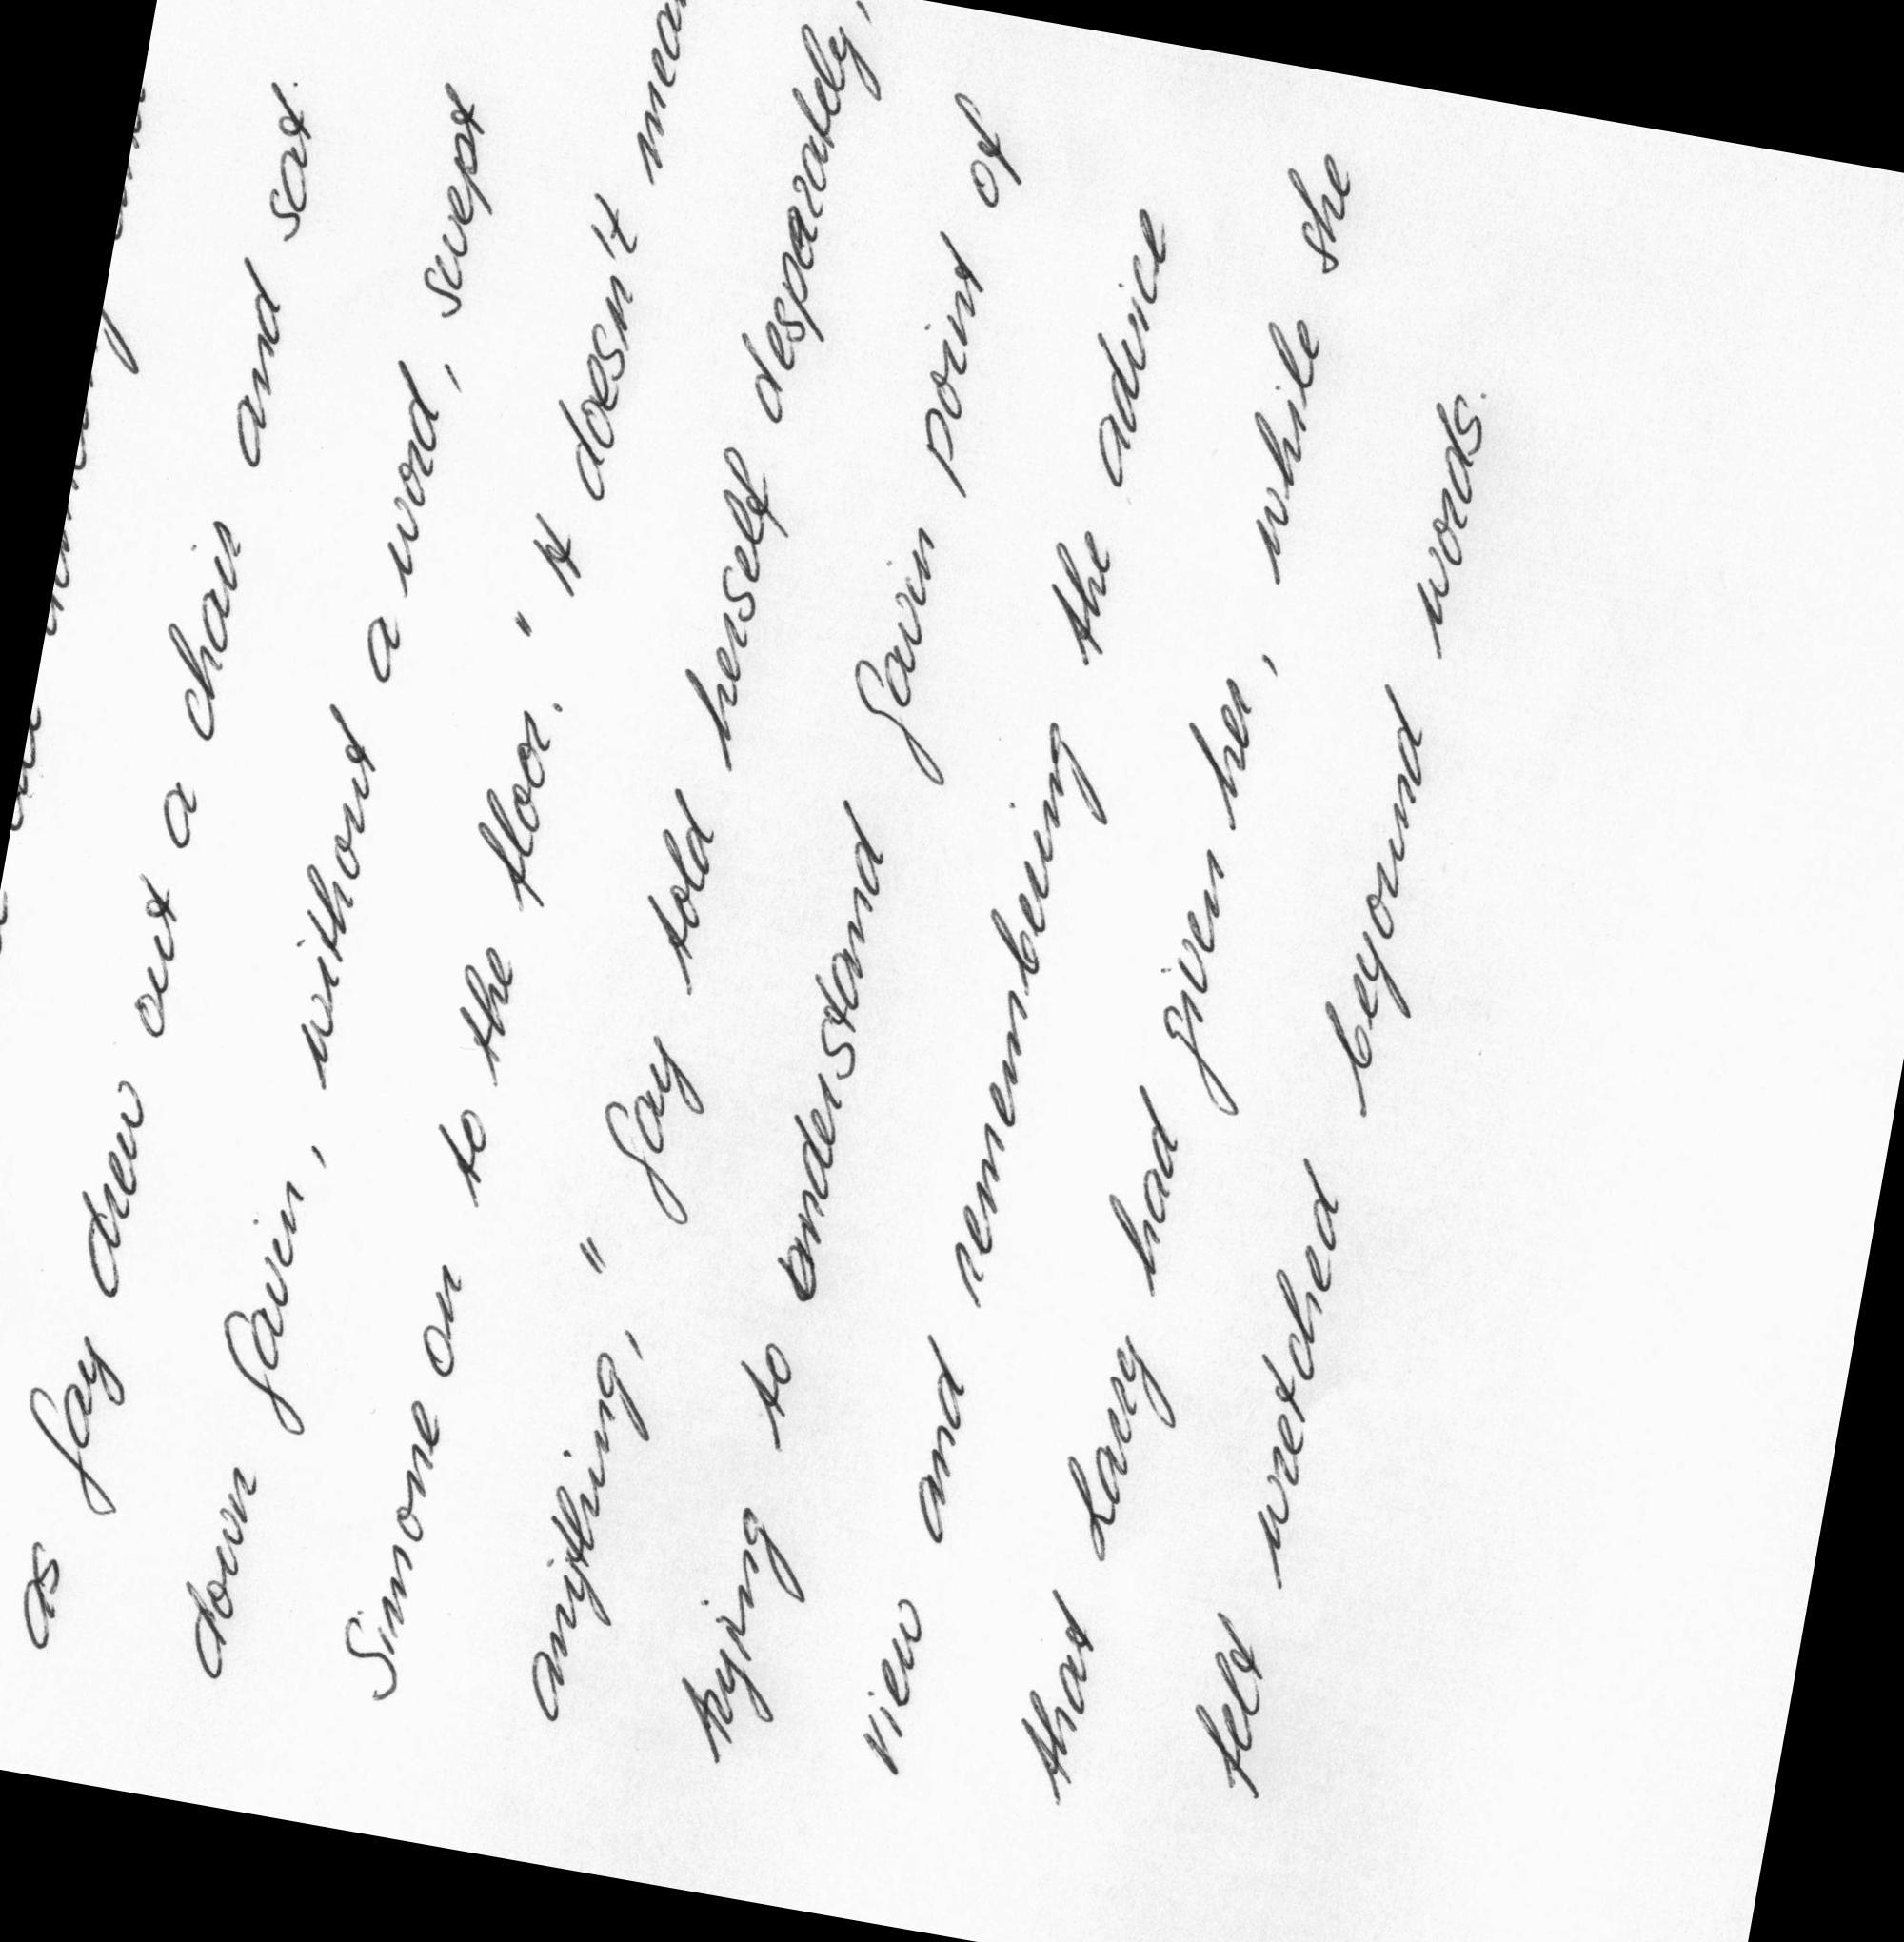 as Gay drew out a chair and sat
down Gavin, without a word, swept
Simone on to the floor. "It doesn't
anything," Gay told herself desparately,
trying to understand Gavin point of
view and remembering the advice
that Larry had given her, while she
felt wretched beyound words.